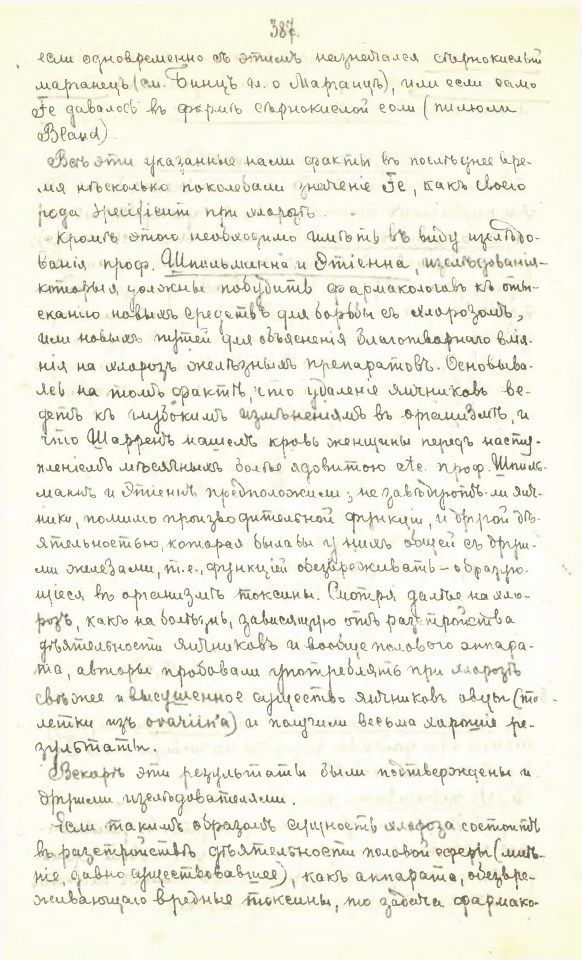 387
если одновременно съ этимъ назначался сѣрнокислый
марганецъ (см. Бинцъ гл. о Марганцѣ), или если само
Fe давалось въ формѣ сѣрнокислой соли (пилюли
Bland)
Всѣ эти указанные нами факты въ послѣднее вре-
мя нѣсколько поколебали значеніе Fe, какъ своего
рода specificum при хлорозѣ.
Кромѣ этого необходимо имѣть въ виду изслѣдо-
ванія проф. Шпильманна и Этіенна, изслѣдованія-
которыя должны побудить фармакологовъ къ оты-
сканію новыхъ средствъ для борьбы съ хлорозомъ,
или новыхъ путей для объясненія благотворнаго влія-
нія на хлорозъ желѣзныхъ препаратовъ. Основыва-
ясь на томъ фактѣ, что удаленіе яичниковъ ве-
детъ къ глубокимъ измѣненіямъ въ организмѣ, и
что Шарренъ нашелъ кровь женщины передъ насту-
пленіемъ мѣсячныхъ болѣе ядовитою проф. Шпиль-
манъ и Этіенъ предположили: не завѣдуютъ-ли яич-
ники, помимо производительной функціи, и другой дѣ-
ятельностью, которая была бы у нихъ общей съ други-
ми железами, т.е. функціей обезвреживать - образую-
щіеся въ организмѣ токсины. Смотря далѣе на хло-
розъ, какъ на болѣзнь, зависящую отъ разстройства
дѣятельности яичниковъ и вообще полового аппара-
та, авторы пробовали употреблять при хлорозѣ
свѣжее и высушенное существо яичниковъ овцы (то-
летки изъ ovariin'a) и получили весьма хорошіе ре-
зультаты.
Вскорѣ эти результаты были подтверждены и
другими изслѣдователями.
Если такимъ образомъ сущность хлороза состоитъ
въ разстройствѣ дѣятельности половой сферы (мнѣ-
ніе, давно существовавшее), какъ аппарата, обезвре-
живающаго вредные токсины, то задача фармако-